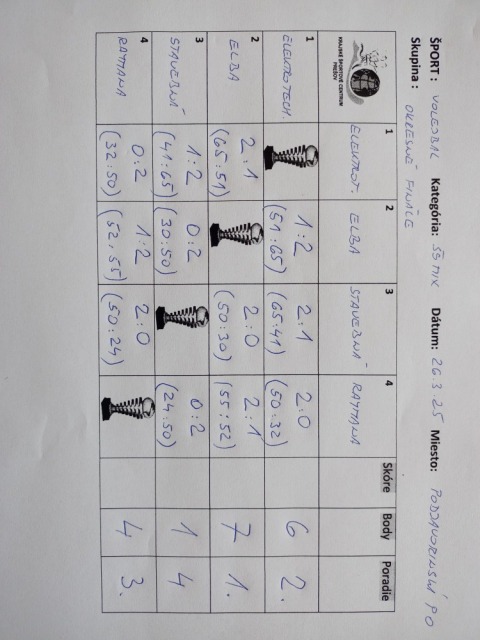 ŠPORT : VOLEJBAL Kategória: SŠ MIX Dátum: 26.3.25 Miesto: PODJAVORINSKÁ PO
Skupina : OKRESNÉ FINÁLE
KRAJSKÉ ŠPORTOVÉ CENTRUM PREŠOV 1 2 3 4 Skóre Body Poradie
ELEKTROT. ELBA STAVEBNÁ RAYMANA
1 1:2 2:1 2:0 6 2.
ELEKTROTECH. (51:65) (65:41) (50:32)
2 2:1 2:0 2:1 7 1.
ELBA (65:51) (50:30) (55:52)
3 1:2 0:2 0:2 1 4
STAVEBNÁ (41:65) (30:50) (24:50)
4 0:2 1:2 2:0 4 3.
RAYMANA (32:50) (52,55) (50:24)